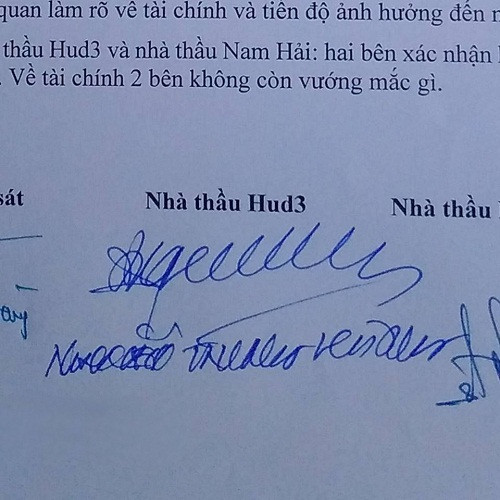 quan làm rõ về tài chính và tiến độ ảnh hưởng đến
thầu Hud3 và nhà thầu Nam Hải: hai bên xác nhận
. Về tài chính 2 bên không còn vướng mắc gì.
sát
Nhà thầu Hud3
Nhà thầu